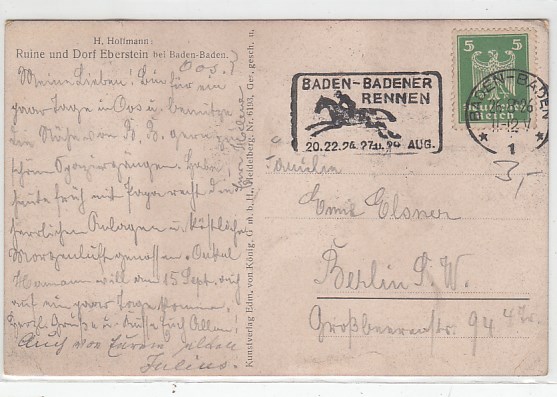 H. Hoffmann:
Ruine und Dorf Eberstein bei Baden-Baden.
Oos.
Meine Lieben! Bin für ein
paar Tage in Oos u. benutze
die Nähe von B. B. zu
schönen Spaziergängen. Habe
heute früh mit Papa recht die
herrlichen Anlagen u. köstliche
Morgenluft genossen. Onkel
Hermann will am 15 Sept. auch
auf ein paar Tage kommen.
Herzl. Grüße u. Küsse Euch Allen!
Auch von Eurem
Julius.
Kunstverlag Edm. von König, G. m. b. H., Heidelberg. Nr. 6193. Ges. gesch.
BADEN-BADENER
RENNEN
20.22.24. 27.u.29 AUG.
5 5
Deutsches
Reich
BADEN-BADEN
1
3,-
Familie
Emil Elsner
Berlin S. W.
Großbeerenstr. 94